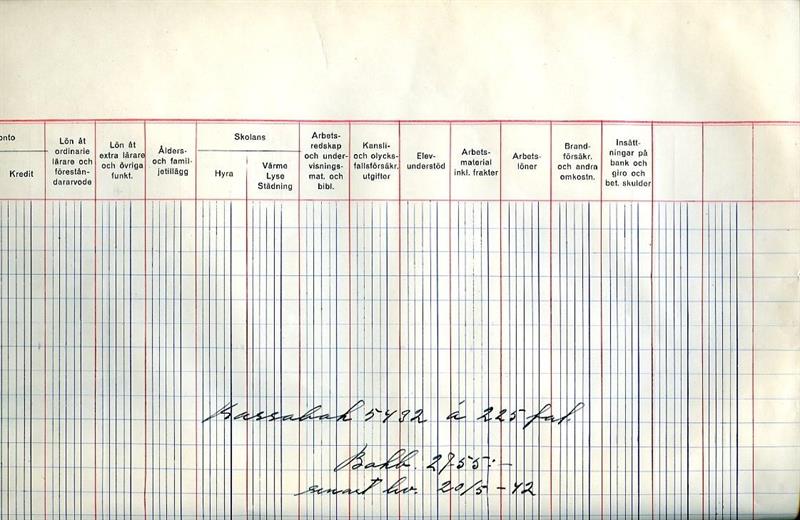 onto
Kredit
Lön åt
ordinarie
lärare och
förestån-
dararvode
Lön åt
extra lärare
och övriga
funkt.
Ålders-
och famil-
jetillägg
Skolans
Hyra
Värme
Lyse
Städning
Arbets-
redskap
och under-
visnings-
mat. och
bibl.
Kansli-
och olycks-
fallsförsäkr.
utgifter
Elev-
understöd
Arbets-
material
inkl. frakter
Arbets-
löner
Brand-
försäkr.
och andra
omkostn.
Insätt-
ningar på
bank och
giro och
bet. skulder
Kassabok 5432 á 225 fal.
Bokb. 2755:-
senast lev. 20/5 -42